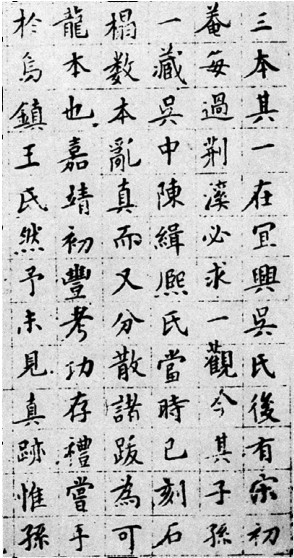 三本其一在宜興吳氏後有宋初
菴每過荆溪必求一觀今其子孫
一藏吳中陳緝熙氏當時已刻石
榻数本亂真而又分散諸跋為可
龍本也嘉靖初豐考功存禮嘗手
於烏鎮王氏然予未見真跡惟孫